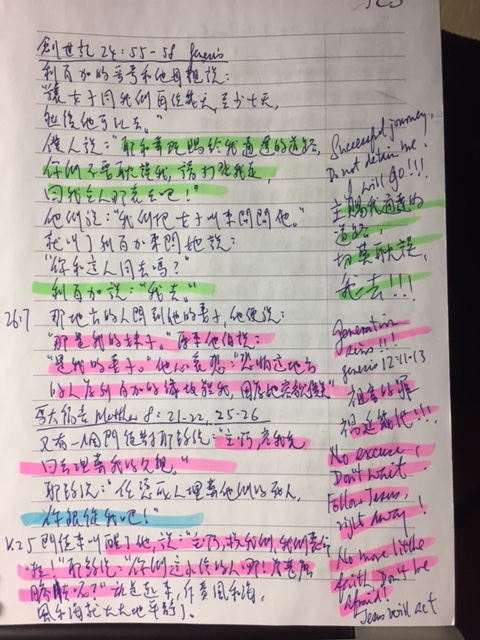 創世記 24:55-58 Genesis
利百加的哥哥和他母親說：
"讓女子同我們再住幾天，至少十天，
然後他可以去。"
僕人說："耶和華既賜給我通達的道路，
你們不要耽誤我，請打發我走，
回我主人那裏去吧！"
他們說："我們把女子叫來問問他。"
就叫了利百加來問她說：
"你和這人同去嗎？"
利百加說："我去。"
26:7 那地方的人問到他的妻子，他便說：
"那是我的妹子。"原來他怕說：
"是我的妻子。"他心裏想："恐怕這地方
的人為利百加的緣故殺我，因為她容貌俊美"
馬太福音 Matthew 8:21-22, 25-26
又有一個門徒對耶穌說："主阿，容我先
回去埋葬我的父親。"
耶穌說："任憑死人埋葬他們的死人，
你跟從我吧！"
V.25 門徒來叫醒了他，說："主阿，救我們，我們喪命
啦！"耶穌說："你們這小信的人哪！為甚麼
膽怯呢？"就起來，斥責風和海，
風和海就大大地平靜了。
Successful journey,
Do not detain me!
I will go!!!
主賜我通達的
道路，
切莫耽誤，
我去!!!
Generation
sins!!!
Genesis 12:11-13
祖宗的罪
禍延後代!!!
No excuse,
Don't wait
Follow Jesus,
right away!
No more little
faith Don't be
Afraid!
Jesus will act